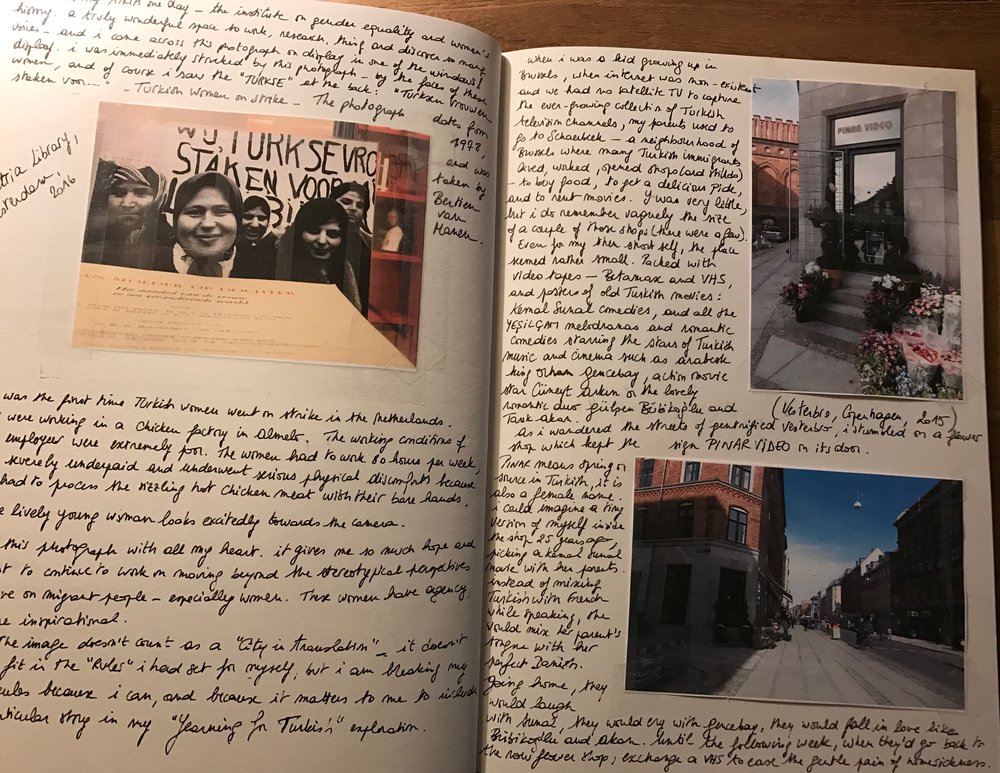 ATRIA one day – the institute on gender equality and women's
history. a truly wonderful space to work, research, thing and discover so many
voices – and i come across this photograph on display in one of the windows/
display. i was immediately strucked by this photograph – by the faces of these
women, and of course i saw the "TURKSE" at the back: "Turksen vrouwen
staken voor..." – Turkish women on strike – The photograph
dates from
1978,
and was
taken by
Bertien
van
Manen.
Atria Library,
2016
WIJ, TURKSE VRO
STAKEN VOOR
MOEDER OP DOCHTER
was the first time Turkish women went on strike in the Netherlands.
were working in a chicken factory in Almelo. The working conditions of
employees were extremely poor. The women had to work 80 hours per week,
severely underpaid and underwent serious physical discomforts because
had to process the sizzling hot chicken meat with their bare hands.
lively young woman looks excitedly towards the camera.
this photograph with all my heart. it gives me so much hope and
to continue to work on moving beyond the stereotypical perspectives
on migrant people – especially women. These women have agency.
inspirational.
The image doesn't count as a "City in Translation" – it doesn't
fit in the "Rules" i had set for myself, but i am breaking my
rules because i can, and because it matters to me to include
particular story in my "Yearning for Turkish" exploration.
when i was a kid growing up in
Brussels, when internet was non-existent
and we had no satellite TV to capture
the ever-growing collection of Turkish
television channels, my parents used to
go to Schaerbeek – a neighbourhood of
Brussels where many Turkish immigrants
lived, worked, opened shops (and still do)
– to buy food, to get a delicious Pide,
and to rent movies. I was very little,
but i do remember vaguely the size
of a couple of those shops (there were a few).
Even for my then short self, the place
seemed rather small. Packed with
video tapes – Betamax and VHS,
and posters of old Turkish movies:
Kemal Sunal comedies, and all the
YEŞİLÇAM melodramas and romantic
comedies starring the stars of Turkish
music and cinema such as arabesk
king Orhan Gencebay, action movie
star Cüneyt Arkın or the lovely
romantic duo Gülşen Bübikoğlu and
Tarık Akan.
(Vesterbro, Copenhagen, 2015)
As i wandered the streets of gentrified Vesterbro, i stumbled on a flower
shop which kept the sign PINAR VIDEO on its door.
PINAR means spring or
source in Turkish, it is
also a female name.
i could imagine a tiny
version of myself inside
the shop 25 years ago,
picking a Kemal Sunal
movie with her parents.
instead of mixing
Turkish with French
while speaking, she
would mix her parent's
tongue with her
perfect Danish.
Going home, they
would laugh
with Sunal, they would cry with Gencebay, they would fall in love like
Bübikoğlu and Akan. Until the following week, when they'd go back to
the now flower shop, exchange a VHS to ease the gentle pain of homesickness.
PINAR VIDEO